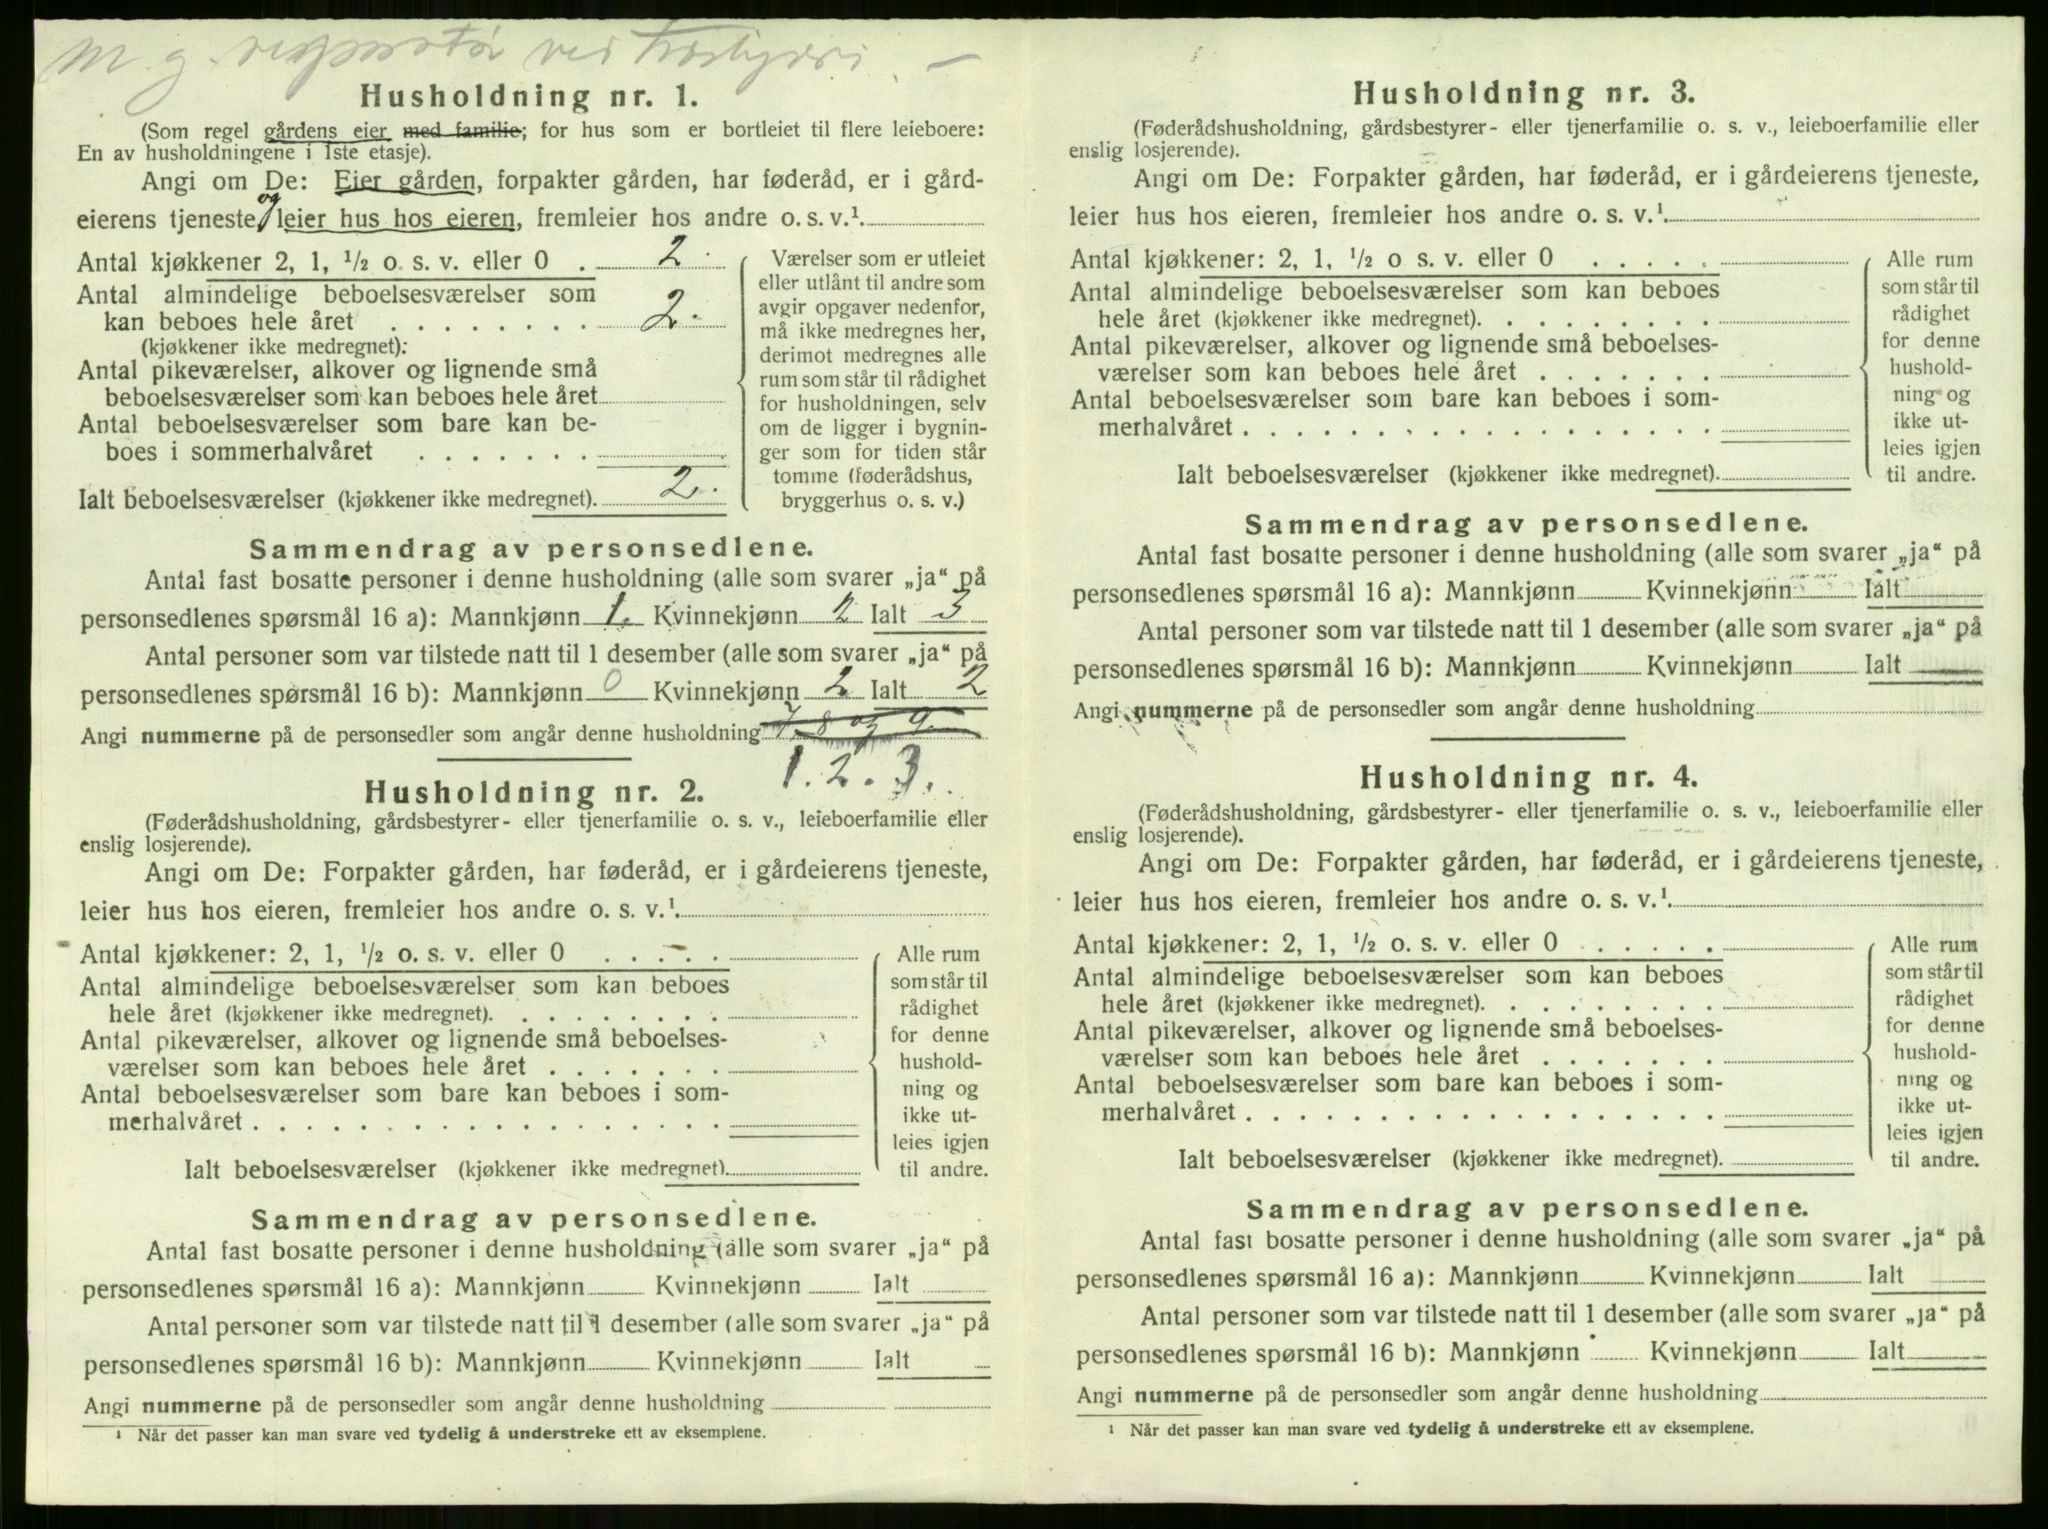 M. g. ved
Husholdning nr. 1.
(Som regel gårdens eier med familie; for hus som er bortleiet til flere leieboere:
En av husholdningene i 1ste etasje).
Angi om De: Eier gården, forpakter gården, har føderåd, er i gård-
og
eierens tjeneste, leier hus hos eieren, fremleier hos andre o. s. v.¹
Antal kjøkkener 2, 1, ½ o. s. v. eller 0 . 2.
Antal almindelige beboelsesværelser som
kan beboes hele året . . . . . . . . 2.
(kjøkkener ikke medregnet):
Antal pikeværelser, alkover og lignende små
beboelsesværelser som kan beboes hele året
Antal beboelsesværelser som bare kan be-
boes i sommerhalvåret . . . . . . .
Ialt beboelsesværelser (kjøkkener ikke medregnet). 2.
Værelser som er utleiet
eller utlånt til andre som
avgir opgaver nedenfor,
må ikke medregnes her,
derimot medregnes alle
rum som står til rådighet
for husholdningen, selv
om de ligger i bygnin-
ger som for tiden står
tomme (føderådshus,
bryggerhus o. s. v.)
Sammendrag av personsedlene.
Antal fast bosatte personer i denne husholdning (alle som svarer „ja“ på
personsedlenes spørsmål 16 a): Mannkjønn 1. Kvinnekjønn 2 Ialt 3
Antal personer som var tilstede natt til 1 desember (alle som svarer „ja“ på
personsedlenes spørsmål 16 b): Mannkjønn 0 Kvinnekjønn 2 Ialt 2
Angi nummerne på de personsedler som angår denne husholdning 7, 8 og 9.
1. 2. 3.
Husholdning nr. 2.
(Føderådshusholdning, gårdsbestyrer- eller tjenerfamilie o. s. v., leieboerfamilie eller
enslig losjerende).
Angi om De: Forpakter gården, har føderåd, er i gårdeierens tjeneste,
leier hus hos eieren, fremleier hos andre o. s. v.¹.
Antal kjøkkener: 2, 1, ½ o. s. v. eller 0 . . . . .
Antal almindelige beboelsesværelser som kan beboes
hele året (kjøkkener ikke medregnet). . . . . . . . .
Antal pikeværelser, alkover og lignende små beboelses-
værelser som kan beboes hele året . . . . . . .
Antal beboelsesværelser som bare kan beboes i som-
merhalvåret . . . . . . . . . . . . . . . . . .
Ialt beboelsesværelser (kjøkkener ikke medregnet).
Alle rum
som står til
rådighet
for denne
hushold-
ning og
ikke ut-
leies igjen
til andre.
Sammendrag av personsedlene.
Antal fast bosatte personer i denne husholdning (alle som svarer „ja“ på
personsedlenes spørsmål 16 a): Mannkjønn Kvinnekjønn Ialt
Antal personer som var tilstede natt til 1 desember (alle som svarer „ja“ på
personsedlenes spørsmål 16 b): Mannkjønn Kvinnekjønn Ialt
Angi nummerne på de personsedler som angår denne husholdning
¹ Når det passer kan man svare ved tydelig å understreke ett av eksemplene.
Husholdning nr. 3.
(Føderådshusholdning, gårdsbestyrer- eller tjenerfamilie o. s. v., leieboerfamilie eller
enslig losjerende).
Angi om De: Forpakter gården, har føderåd, er i gårdeierens tjeneste,
leier hus hos eieren, fremleier hos andre o. s. v.¹.
Antal kjøkkener: 2, 1, ½ o s. v. eller 0 . . . . .
Antal almindelige beboelsesværelser som kan beboes
hele året (kjøkkener ikke medregnet). . . . . . . . .
Antal pikeværelser, alkover og lignende små beboelses-
værelser som kan beboes hele året . . . . . . .
Antal beboelsesværelser som bare kan beboes i som-
merhalvåret . . . . . . . . . . . . . . . . . .
Ialt beboelsesværelser (kjøkkener ikke medregnet).
Alle rum
som står til
rådighet
for denne
hushold-
ning og
ikke ut-
leies igjen
til andre.
Sammendrag av personsedlene.
Antal fast bosatte personer i denne husholdning (alle som svarer „ja“ på
personsedlenes spørsmål 16 a): Mannkjønn Kvinnekjønn Ialt
Antal personer som var tilstede natt til 1 desember (alle som svarer „ja“ på
personsedlenes spørsmål 16 b): Mannkjønn Kvinnekjønn Ialt
Angi nummerne på de personsedler som angår denne husholdning
Husholdning nr. 4.
(Føderådshusholdning, gårdsbestyrer- eller tjenerfamilie o. s. v., leieboerfamilie eller
enslig losjerende).
Angi om De: Forpakter gården, har føderåd, er i gårdeierens tjeneste,
leier hus hos eieren, fremleier hos andre o. s. v.¹.
Antal kjøkkener: 2, 1, ½ o. s. v. eller 0 . . . . .
Antal almindelige beboelsesværelser som kan beboes
hele året (kjøkkener ikke medregnet). . . . . . . . .
Antal pikeværelser, alkover og lignende små beboelses-
værelser som kan beboes hele året . . . . . . .
Antal beboelsesværelser som bare kan beboes i som-
merhalvåret . . . . . . . . . . . . . . . . . .
Ialt beboelsesværelser (kjøkkener ikke medregnet).
Alle rum
som står til
rådighet
for denne
hushold-
ning og
ikke ut-
leies igjen
til andre.
Sammendrag av personsedlene.
Antal fast bosatte personer i denne husholdning (alle som svarer „ja“ på
personsedlenes spørsmål 16 a): Mannkjønn Kvinnekjønn Ialt
Antal personer som var tilstede natt til 1 desember (alle som svarer „ja“ på
personsedlenes spørsmål 16 b): Mannkjønn Kvinnekjønn Ialt
Angi nummerne på de personsedler som angår denne husholdning
¹ Når det passer kan man svare ved tydelig å understreke ett av eksemplene.